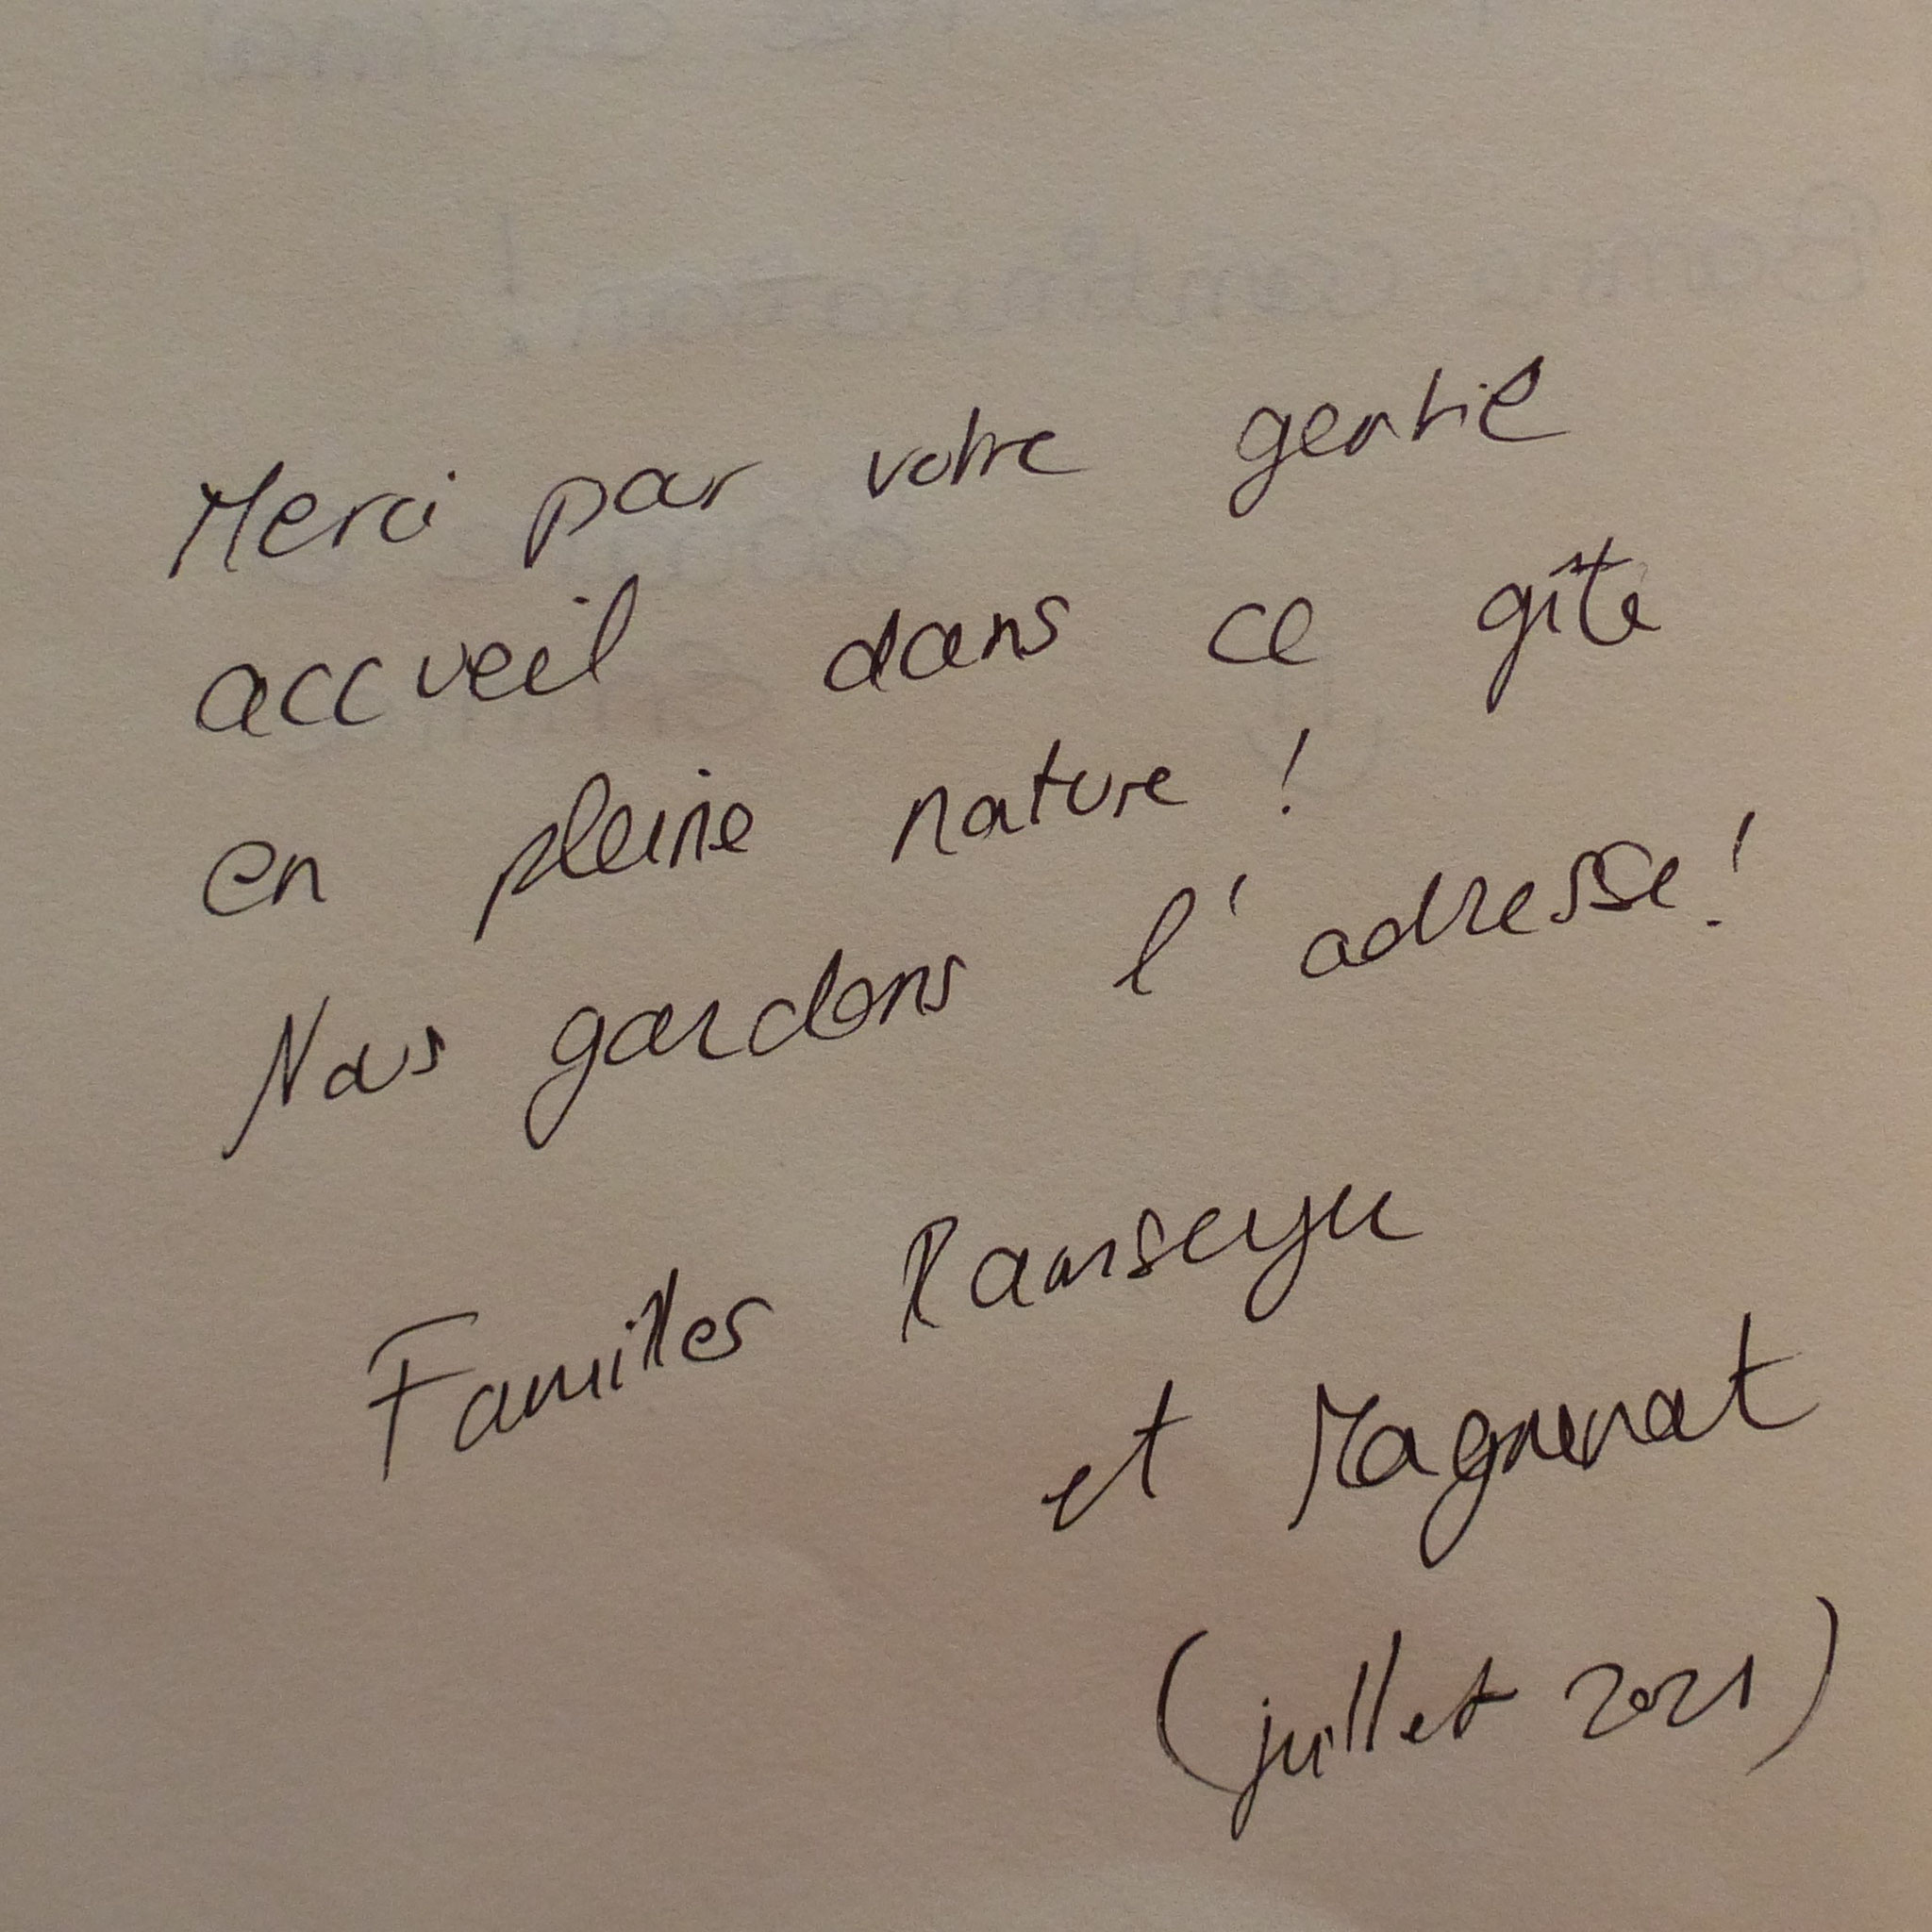 Merci pour votre gentil
accueil dans ce gîte
en pleine nature !
Nous gardons l'adresse !
Familles Ramseyer
et Magnenat
(juillet 2021)
Bonne continuation !